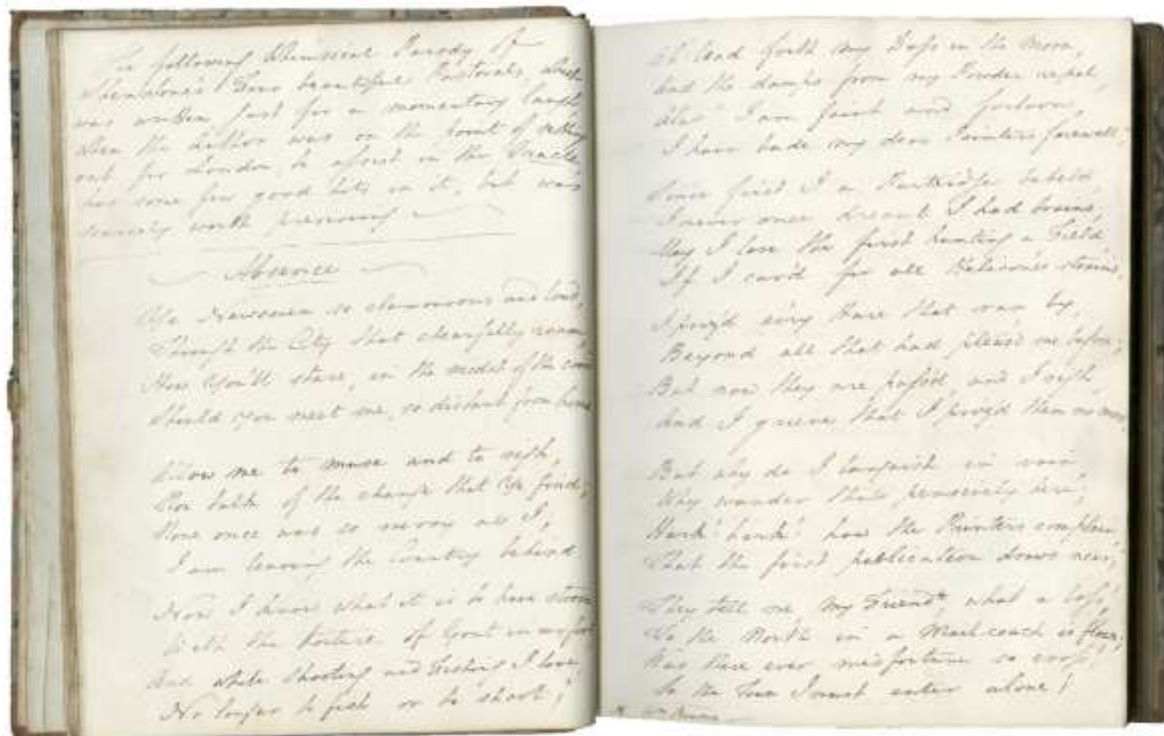 The following Whimsical Parody of
Shenstone's Four beautiful Pastorals, which
was written just for a momentary laugh
when the Author was on the point of setting
out for London to assist in the Oracle,
has some few good hits in it, but was
scarcely worth preserving
Absence
Ye Newsmen so clamorous and loud,
Through the City that chearfully roam,
How you'll stare, in the midst of the crowd
Should you meet me, so distant from home
Allow me to muse and to sigh,
Nor talk of the change that ye find;
None once was so merry as I,
I am leaving the Country behind
Now I know what it is to have strove
With the torture of Gout in my foot
And while shooting and fishing I love,
No longer to fish or to shoot;
Ah lead forth my in the morn,
And the damps from my Powder repel,
Alas! I am faint and forlorn
I have bade my dear Pointers farewell!
Since first I a Partridge beheld,
I never once dreamt I had brains;
May I lose the first hunting a Field
If I car'd for all Helicon's strains,
I priz'd ev'ry Hare that ran by,
Beyond all that had pleas'd me before;
But now they are pass'd, and I sigh,
And I grieve that I priz'd them no more,
But why do I languish in vain,
Why wander thus pensively here;
Hark! hark! how the Printers complain,
That the first publication draws near;
They tell me my Friend, what a loss,
To the North in a Mail-coach is flown;
Was there ever misfortune so cross!
to the I must enter alone!